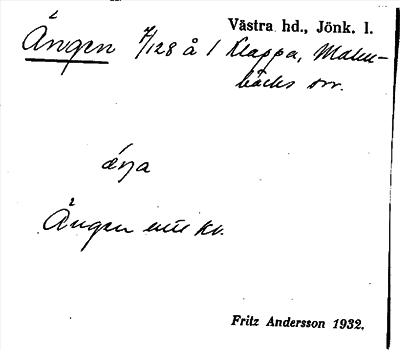 Västra hd., Jönk. l.
Ängen 7/128 å 1 Klappa, Malm-
bäcks sn.
äŋa
Ängen enl kv.
Fritz Andersson 1932.